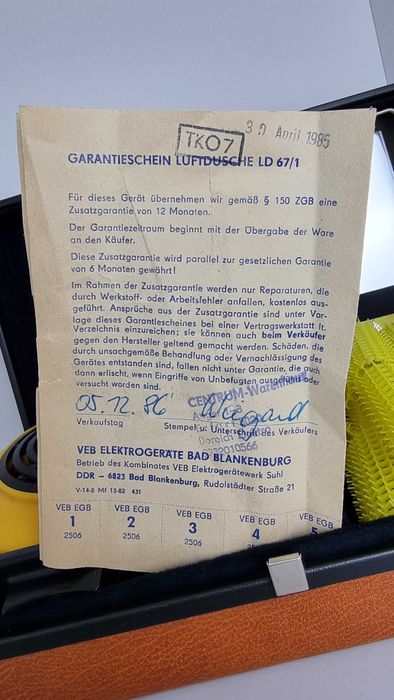 TKO7
30 April 1985
GARANTIESCHEIN LUFTDUSCHE LD 67/1
Für dieses Gerät übernehmen wir gemäß § 150 ZGB eine
Zusatzgarantie von 12 Monaten.
Der Garantiezeitraum beginnt mit der Übergabe der Ware
an den Käufer.
Diese Zusatzgarantie wird parallel zur gesetzlichen Garantie
von 6 Monaten gewährt!
Im Rahmen der Zusatzgarantie werden nur Reparaturen, die
durch Werkstoff- oder Arbeitsfehler anfallen, kostenlos aus-
geführt. Ansprüche aus der Zusatzgarantie sind unter Vor-
lage dieses Garantiescheines bei einer Vertragswerkstatt lt.
Verzeichnis einzureichen; sie können auch beim Verkäufer
gegen den Hersteller geltend gemacht werden. Schäden, die
durch unsachgemäße Behandlung oder Vernachlässigung des
Gerätes entstanden sind, fallen nicht unter Garantie, die auch
dann erlischt, wenn Eingriffe von Unbefugten ausgeführt oder
versucht worden sind.
CENTRUM-Warenhaus
05.12.86 Weigandt
Verkaufstag Stempel u. Unterschrift des Verkäufers
VEB ELEKTROGERÄTE BAD BLANKENBURG
Betrieb des Kombinates VEB Elektrogerätewerk Suhl
DDR – 6823 Bad Blankenburg, Rudolstädter Straße 21
V-14-8 Mf 13-82 431
VEB EGB VEB EGB VEB EGB VEB EGB VEB EGB
1 2 3 4 5
2506 2506 2506 2506